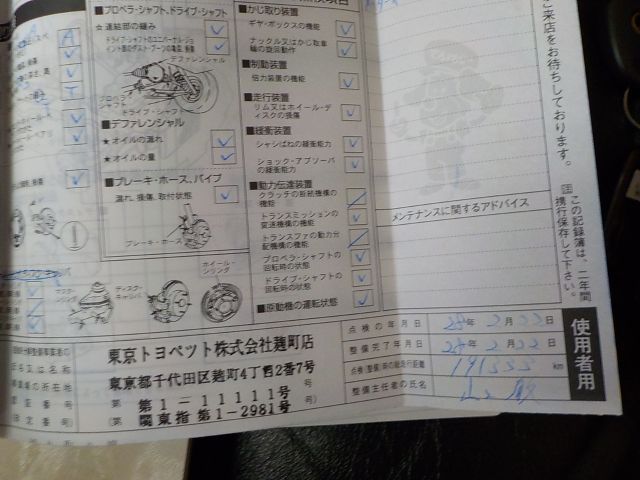 ■プロペラ・シャフト、ドライブ・シャフト
★連結部の緩み
ドライブ・シャフトのユニバーサル・ジョ
イント部のダスト・ブーツの亀裂、損傷
デファレンシャル
プロペラ・
シャフト
ドライブ・シャフト
■デファレンシャル
★オイルの漏れ
★オイルの量
■ブレーキ・ホース、パイプ
漏れ、損傷、取付状態
ブレーキ・ホース
マスター・
シリンダ
ディスク・
キャリパ
ホイール・
シリンダ
■かじ取り装置
ギヤ・ボックスの機能
ナックル又はかじ取車
輪の旋回動作
■制動装置
倍力装置の機能
■走行装置
リム又はホイール・デ
ィスクの損傷
■緩衝装置
シャシばねの緩衝能力
ショック・アブソーバ
の緩衝能力
■動力伝達装置
クラッチの断続機構の
機能
トランスミッションの
変速機構の機能
トランスファの動力分
配機構の機能
プロペラ・シャフトの
回転時の状態
ドライブ・シャフトの
回転時の状態
■原動機の運転状態
ご来店をお待ちしております。
メンテナンスに関するアドバイス
この記録簿は、二年間
携行保存して下さい。
東京トヨペット株式会社麹町店
東京都千代田区麹町4丁目2番7号
第 第1－11111号 号
(第 関東指 第1-2981号 号)
点検の年月日 28年 2月 22日
整備完了年月日 28年 2月 22日
点検(整備)時の総走行距離 191555 km
整備主任者の氏名
使用者用